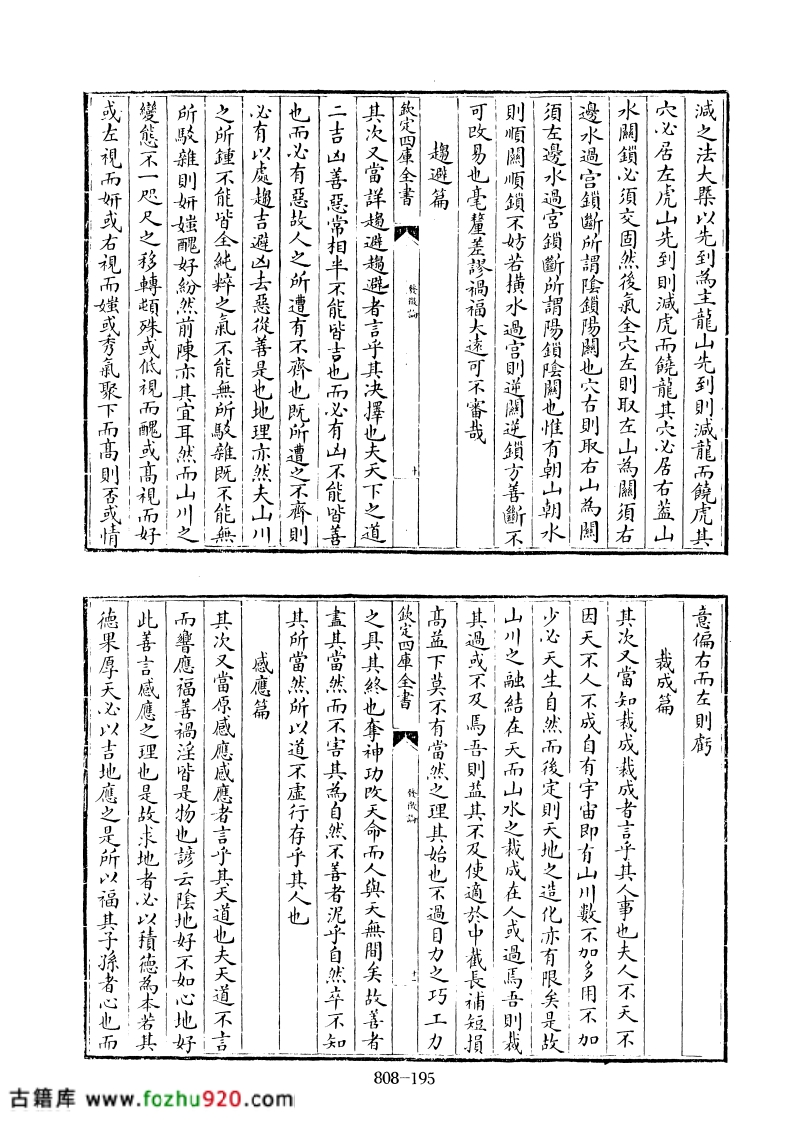 減之法大槩以先到為主龍山先到則減龍而饒虎其
穴必居左虎山先到則減虎而饒龍其穴必居右葢山
水關鎖必須交固然後氣全穴左則取左山為關須右
邊水過宫鎖斷所謂陰鎖陽關也穴右則取右山為關
須左邊水過宫鎖斷所謂陽鎖陰關也惟有朝山朝水
則順關順鎖不妨若横水過宫則逆關逆鎖方善斷不
可改易也毫釐差謬禍福大遠可不審哉
趨避篇
欽定四庫全書
發微論
十
其次又當詳趨避趨避者言乎其决擇也夫天下之道
二吉凶善惡常相半不能皆吉也而必有凶不能皆善
也而必有惡故人之所遭有不齊也既所遭之不齊則
必有以處趨吉避凶去惡從善是也地理亦然夫山川
之所鍾不能皆全純粹之氣不能無所駁雜既不能無
所駁雜則妍媸醜好紛然前陳亦其宜耳然而山川之
變態不一咫尺之移轉頓殊或低視而醜或髙視而好
或左視而妍或右視而媸或秀氣聚下而髙則否或情
意偏右而左則虧
裁成篇
其次又當知裁成裁成者言乎其人事也夫人不天不
因天不人不成自有宇宙即有山川數不加多用不加
少必天生自然而後定則天地之造化亦有限矣是故
山川之融結在天而山水之裁成在人或過焉吾則裁
其過或不及焉吾則益其不及使適於中截長補短損
髙益下莫不有當然之理其始也不過目力之巧工力
欽定四庫全書
發微論
十一
之具其終也奪神功改天命而人與天無間矣故善者
盡其當然而不害其為自然不善者泥乎自然卒不知
其所當然所以道不虛行存乎其人也
感應篇
其次又當原感應感應者言乎其天道也夫天道不言
而響應福善禍淫皆是物也諺云陰地好不如心地好
此善言感應之理也是故求地者必以積德為本若其
德果厚天必以吉地應之是所以福其子孫者心也而
808-195
古籍库 www.fozhu920.com